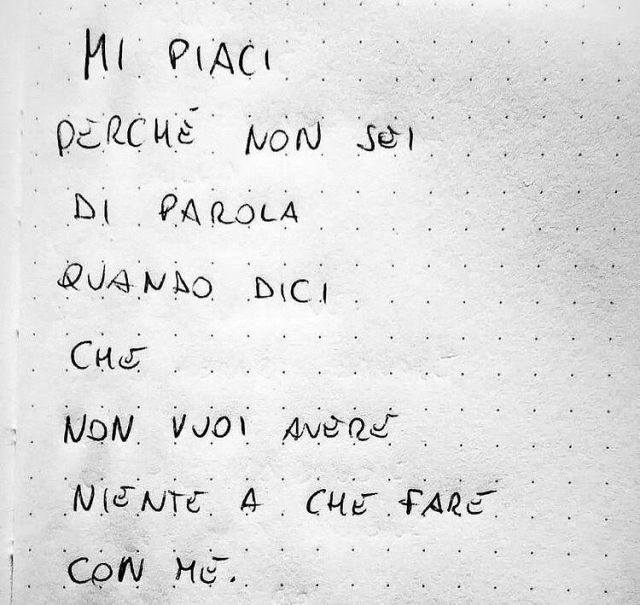 MI PIACI
PERCHÉ NON SEI
DI PAROLA
QUANDO DICI
CHE
NON VUOI AVERE
NIENTE A CHE FARE
CON ME.